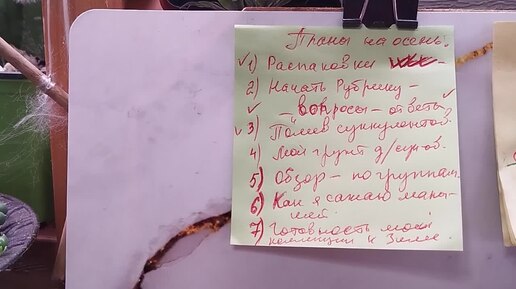 Планы на осень:
✓ 1) Распаковки -
2) Начать Рубрику -
✓ "Вопросы - ответы"
✓ 3) Полив суккулентов
4) Мой грунт д/сук-ов.
5) Обзор - по группам
6) Как я сажаю малы-
шей.
7) Готовность моей
коллекции к Зиме.